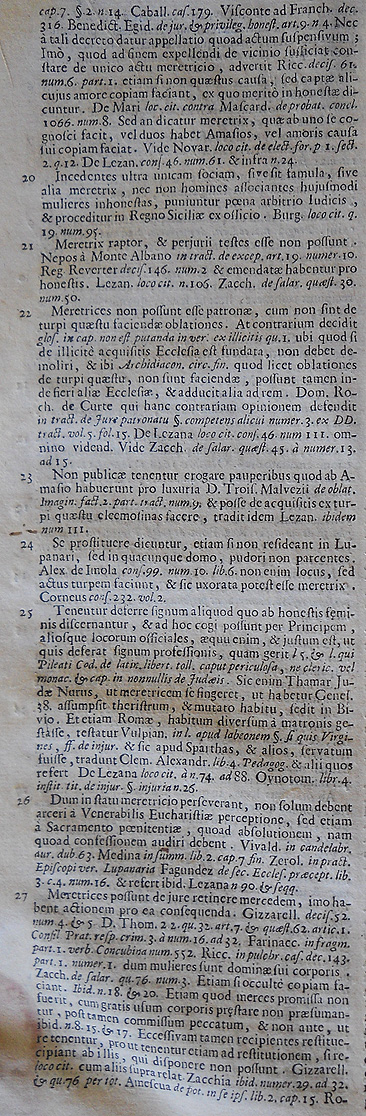 cap.7. §.2. n.14. Caball. cas.179. Visconte ad Franch. dec.
316. Benedict. Egid. de jur. & privileg. honest. art.9. n 4. Nec
à tali decreto datur appellatio quoad actum suspensivum;
Imò, quod ad finem expellendi de vicinio sufficiat con-
stare de unico actu meretricio, advertit Ricc. decis. 61.
num.6. part.1. etiam si non quæstus causa, sed captæ ali-
cujus amore copiam faciant, ex quo meritò in honestæ di-
cuntur. De Mari loc. cit. contra Mascard. de probat. concl.
1066. num.8. Sed an dicatur meretrix, quæ ab uno se co-
gnosci facit, vel duos habet Amasios, vel amoris causa
sui copiam faciat. Vide Novar. loc. cit. de elect. for. p 1. sect.
2. q.12. De Lezan. cons.46. num.61. & infra n.24.
20 Incedentes ultra unicam sociam, sive sit famula, sive
alia meretrix, nec non homines associantes hujusmodi
mulieres inhonestas, puniuntur pœna arbitrio Iudicis,
& proceditur in Regno Siciliæ ex officio. Burg. loco cit. q.
19. num.95.
21 Meretrix raptor, & perjurii testes esse non possunt.
Nepos à Monte Albano in tract. de excep. art.19. numer.10.
Reg. Reverter decis.146. num.2 & emendatæ habentur pro
honestis. Lezan. loco cit. n.106. Zacch. de salar. quæst. 30.
num.50.
22 Meretrices non possunt esse patronæ, cum non sint de
turpi quæstu faciendæ oblationes. At contrarium decidit
glos. in cap. non est putanda in ver. ex illicitis qu.1. ubi quod si
de illicitè acquisitis Ecclesia est fundata, non debet de-
moliri, & ibi Archidiacon. circ. fin. quod licet oblationes
de turpi quæstu, non sunt faciendæ, possunt tamen in-
de fieri aliæ Ecclesiæ, & adducit alia ad rem. Dom. Ro-
ch. de Curte qui hanc contrariam opinionem defendit
in tract. de Jure patronatu §. competens alicui numer.3. ex DD.
tract. vol.5. fol.15. De Lezana loco cit. cons.46. num 111. om-
nino vidend. Vide Zacch. de salar. quæst.45. à numer.13.
ad 15.
23 Non publicæ tenentur erogare pauperibus quod ab A-
masio habuerunt pro luxuria D. Trois. Malvezii de oblat.
Imagin. fact.2. part. tract. num.9. & posse de acquisitis ex tur-
pi quæstu eleemosinas facere, tradit idem Lezan. ibidem
num 111.
24 Se prostituere dicuntur, etiam si non resideant in Lu-
panari, sed in quacunque domo, pudori non parcentes.
Alex. de Imola cons.99. num.10. lib.6. non enim locus, sed
actus turpem faciunt, & sic uxorata potest esse meretrix.
Corneus cons.232. vol.2.
25 Tenentur deferre signum aliquod quo ab honestis femi-
nis discernantur, & ad hoc cogi possunt per Principem,
aliosque locorum officiales, æqu enim, & justum est, ut
quis deferat signum professionis, quam gerit l 5. & l. qui
Pileati Cod. de latin. libert. toll. caput periculosa, ne cleric. vel
monac. & cap. in nonnullis de Judæis. Sic enim Thamar Ju-
dæ Nurus, ut meretricem se fingeret, ut habetur Genes.
38. assumpsit theristrum, & mutato habitu, sedit in Bi-
vio. Et etiam Romæ, habitum diversum à matronis ge-
stasse, testatur Vulpian. in l. apud labeonem §. si quis Virgi-
nes, ff. de injur. & sic apud Sparthas, & alios, servatum
fuisse, tradunt Clem. Alexandr. lib.4. Pedagog. & alii quos
refert De Lezana loco cit. à n.74. ad 88. Oynotom. libr.4.
instit. tit. de injur. §. injuria n.26.
26 Dum in statu meretricio perseverant, non solum debent
arceri à Venerabilis Eucharistiæ perceptione, sed etiam
à Sacramento pœnitentiæ, quoad absolutionem, nam
quoad confessionem audiri debent. Vivald. in candelabr.
aur. dub.63. Medina in summ. lib.2. cap.7 fin. Zerol. in pract.
Episcopi ver. Lupanaria Fagundez de sec. Eccles. præcept. lib.
3. c.4. num.16. & refert ibid. Lezana n 90. & seqq.
27 Meretrices possunt de jure retinere mercedem, imo ha-
bent actionem pro ea consequenda. Gizzarell. decis.52.
num 4. & 5. D. Thom. 2 2. qu.32. art.7. & quæst.62. artic.1.
Consil Prat. resp. crim.3. à num.16. ad 32. Farinacc. in fragm.
part.1. verb. Concubina num.552. Ricc. in pulebr. cas. dec.143.
part.1. numer.1. dum mulieres sunt dominæ sui corporis.
Zacch. de salar. qu.76. num.3. Etiam si occultè copiam fa-
ciant. Ibid. n.18. & 20. Etiam quod merces promissa non
fuerit, cum gratis usum corporis præstare non præsuman-
tur, post tamen commissum peccatum, & non ante, ut
ibid. n.8. 15. & 17. Eccessivam tamen recipientes restitue-
re tenentur, prout tenentur etiam ad restitutionem, si re-
cipiant ab illis, qui disponere non possunt. Gizzarell.
loco cit. cum aliis supra relat. Zacchia ibid. numer.29. ad 32.
& qu.76 per tot. Amescua de pot. in se ips. lib.2. cap.15. Ro-